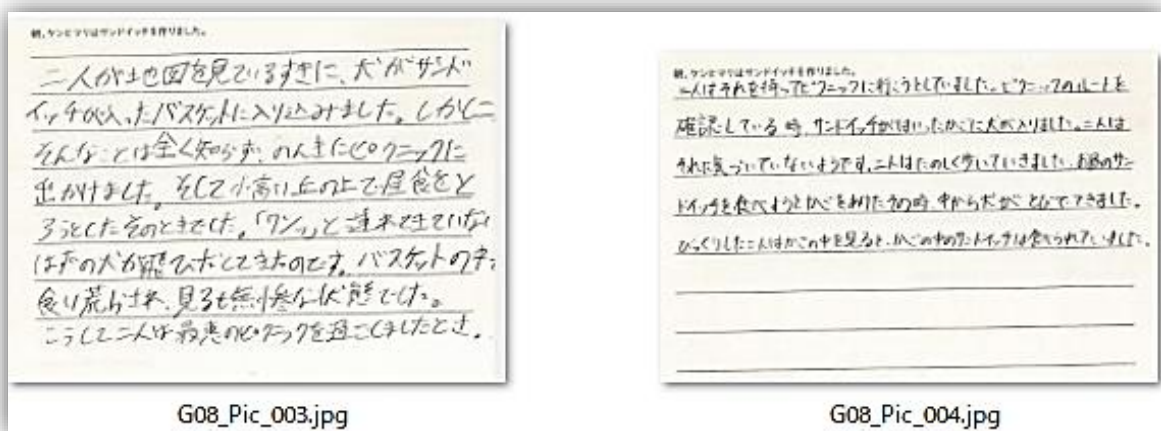 朝、ケンとマリはサンドイッチを作りました。
二人が地図を見ているすきに、犬がサンド
イッチが入ったバスケットに入り込みました。しかし二
そんなことは全く知らず、のん気にピクニックに
出かけました。そして小高い丘の上で昼食をと
ろうとしたそのときでした。「ワンッ」と連れてきていない
はずの犬が飛びだしてきたのです。バスケットの中
食い荒らされ、見るも無惨な状態でした。
こうして二人は最悪のピクニックを過ごしましたとさ。
G08_Pic_003.jpg
朝、ケンとマリはサンドイッチを作りました。
二人はそれを持ってピクニックに行こうとしていました。ピクニックのルートを
確認している時、サンドイッチがはいったかごに犬が入りました。二人は
それに気づいていないようです。二人はたのしく歩いていきました。お昼のサン
ドイッチを食べようとかごをあけたその時、中から犬がとびでてきました。
びっくりした二人はかごの中を見ると、かごの中のサンドイッチは食べられていました。
G08_Pic_004.jpg